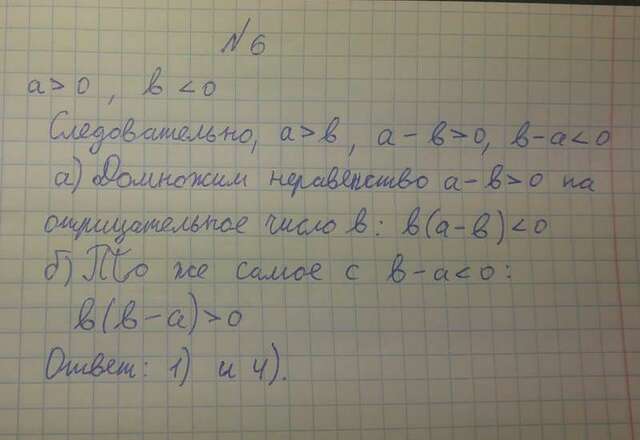 № 6
a > 0, в < 0
Следовательно, a > в, a - в > 0, в - a < 0
а) Домножим неравенство a - в > 0 на
отрицательное число в: в(a - в) < 0
б) То же самое с в - a < 0:
в(в - a) > 0
Ответ: 1) и 4).